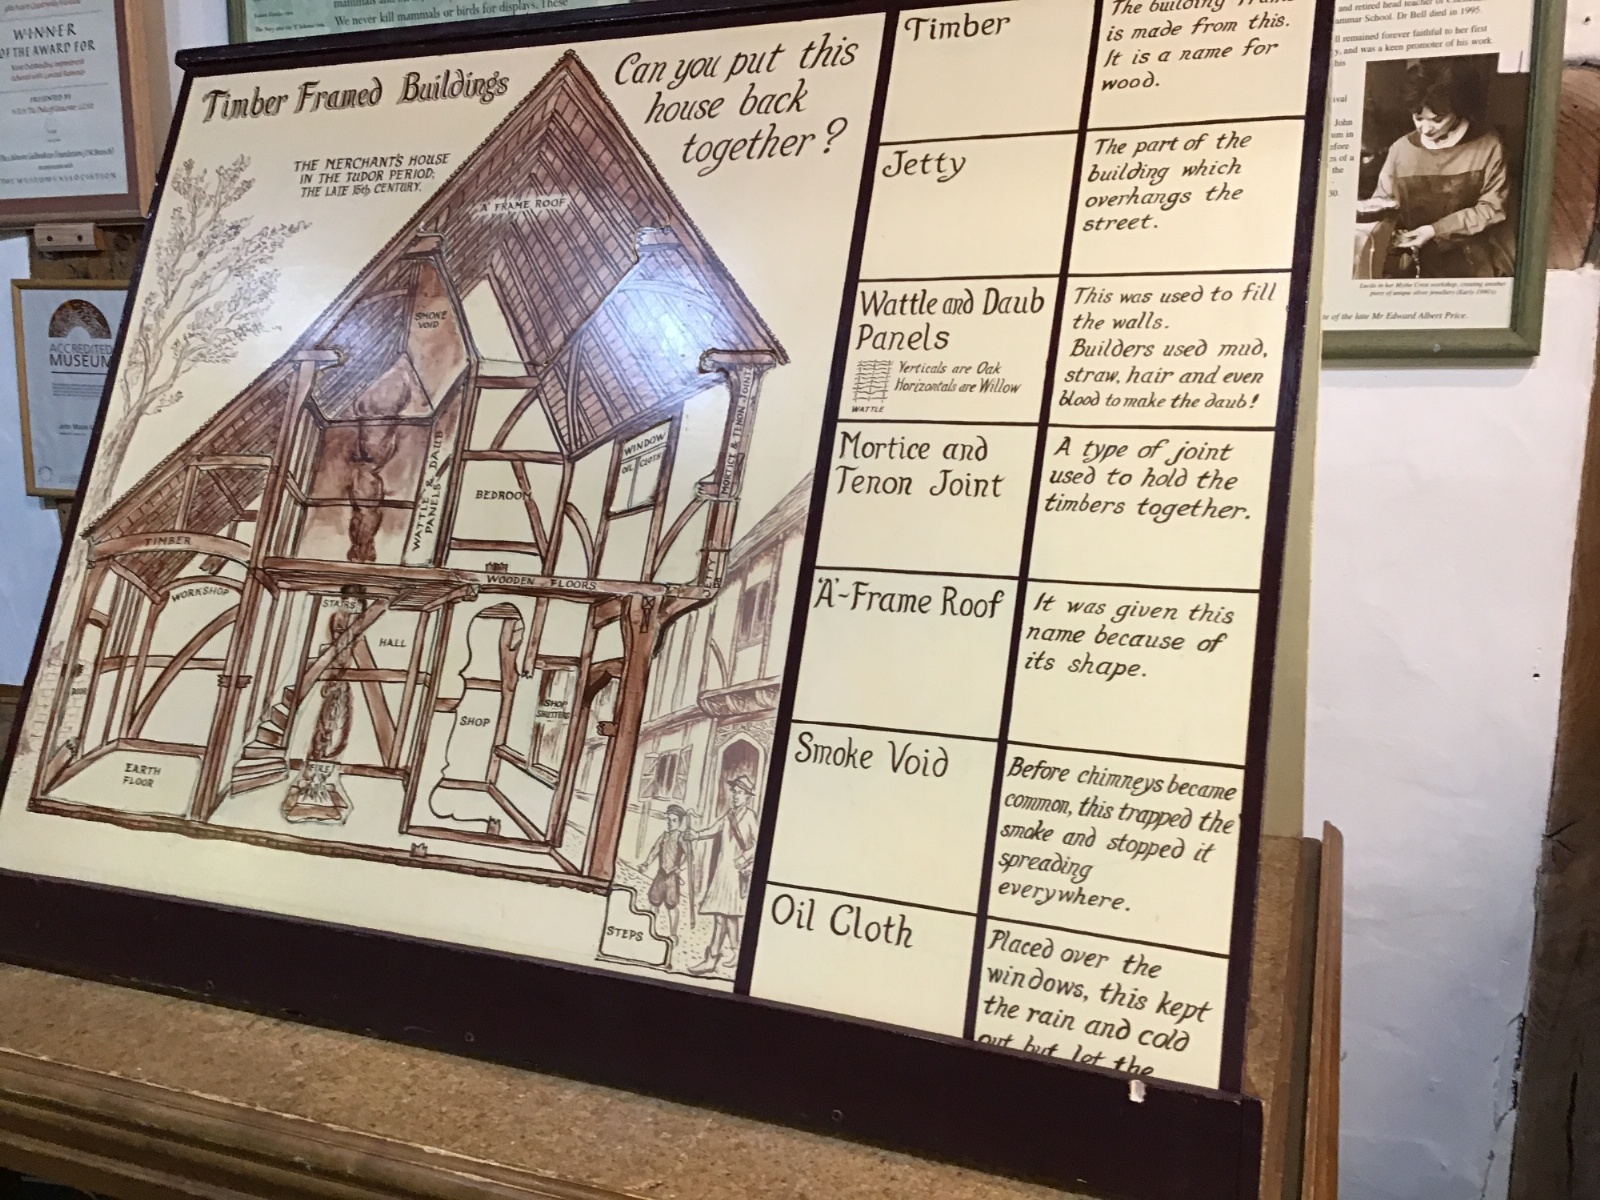 WINNER
OF THE AWARD FOR
PRESENTED BY
THE MUSEUMS ASSOCIATION
ACCREDITED
MUSEUM
We never kill mammals or birds for displays. These
Timber Framed Buildings
THE MERCHANT'S HOUSE
IN THE TUDOR PERIOD;
THE LATE 15th CENTURY.
Can you put this
house back
together?
'A' FRAME ROOF
SMOKE
VOID
WATTLE & DAUB
PANELS
MORTICE & TENON JOINT
WINDOW
OIL CLOTH
BEDROOM
TIMBER
WORKSHOP
WOODEN FLOORS
JETTY
STAIRS
HALL
DOOR
SHOP
SHOP
SHUTTERS
EARTH
FLOOR
FIRE
STEPS
Timber
The building frame
is made from this.
It is a name for
wood.
Jetty
The part of the
building which
overhangs the
street.
Wattle and Daub
Panels
Verticals are Oak
Horizontals are Willow
WATTLE
This was used to fill
the walls.
Builders used mud,
straw, hair and even
blood to make the daub!
Mortice and
Tenon Joint
A type of joint
used to hold the
timbers together.
'A'-Frame Roof
It was given this
name because of
its shape.
Smoke Void
Before chimneys became
common, this trapped the
smoke and stopped it
spreading
everywhere.
Oil Cloth
Placed over the
windows, this kept
the rain and cold
out but let the
and retired head teacher of
ammar School. Dr Bell died in 1995.
ll remained forever faithful to her first
y, and was a keen promoter of his work
his
ival
John
um in
efore
es of a
the
30.
Lucila in her Mythe Crest workshop, creating another
piece of unique silver jewellery (Early 1940's)
te of the late Mr Edward Albert Price.